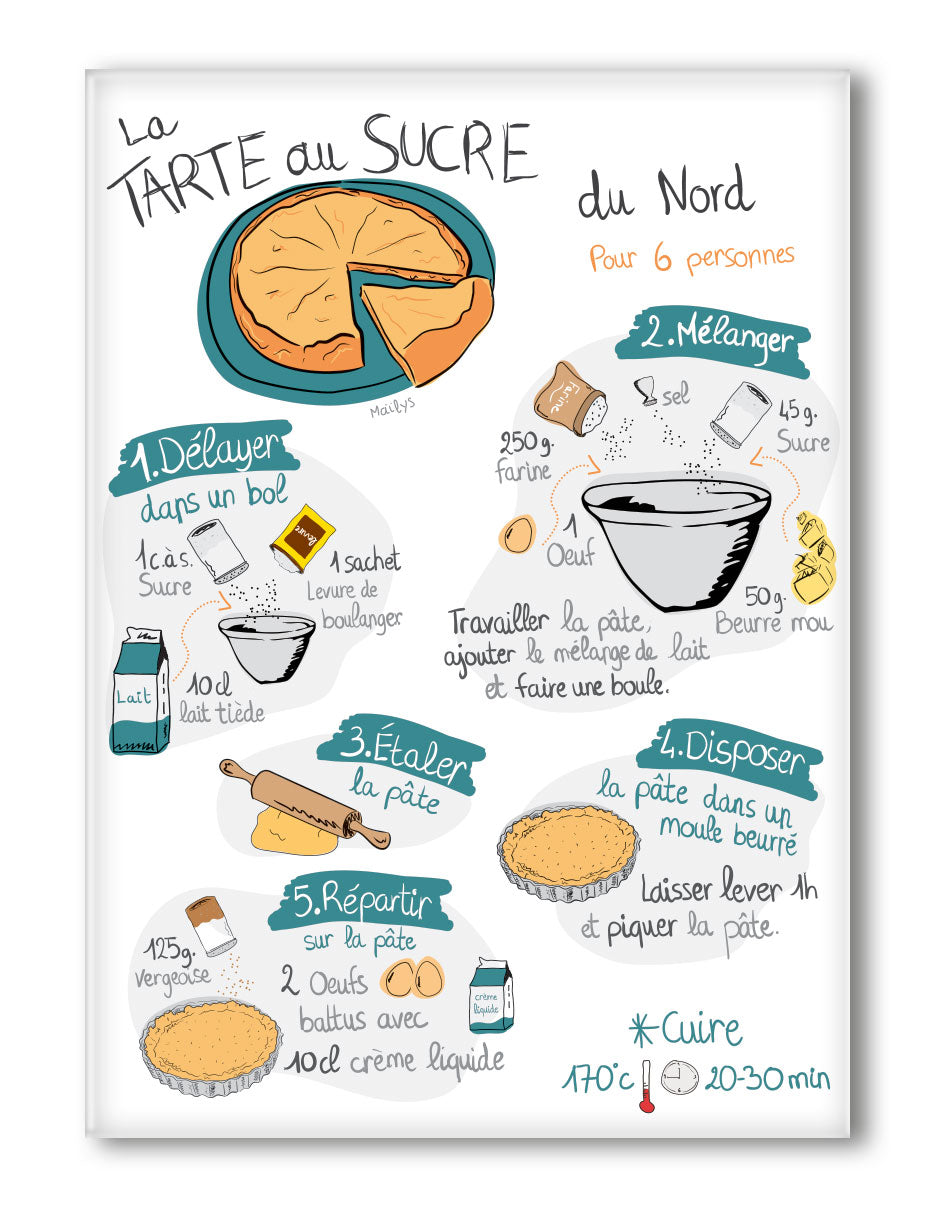 La
TARTE au SUCRE
du Nord
Pour 6 personnes
Maïlys
1.Délayer
dans un bol
1 c.à.s.
Sucre
levure
1 sachet
Levure de
boulanger
Lait
10cl
lait tiède
2.Mélanger
Farine
sel
45 g.
Sucre
250 g.
farine
1
Oeuf
50 g.
Beurre mou
Travailler la pâte,
ajouter le mélange de lait
et faire une boule.
3.Étaler
la pâte
4.Disposer
la pâte dans un
moule beurré
Laisser lever 1h
et piquer la pâte.
5.Répartir
sur la pâte
125g.
vergeoise
2 Oeufs
battus avec
10cl crème liquide
crème
liquide
*Cuire
170°c 20-30 min